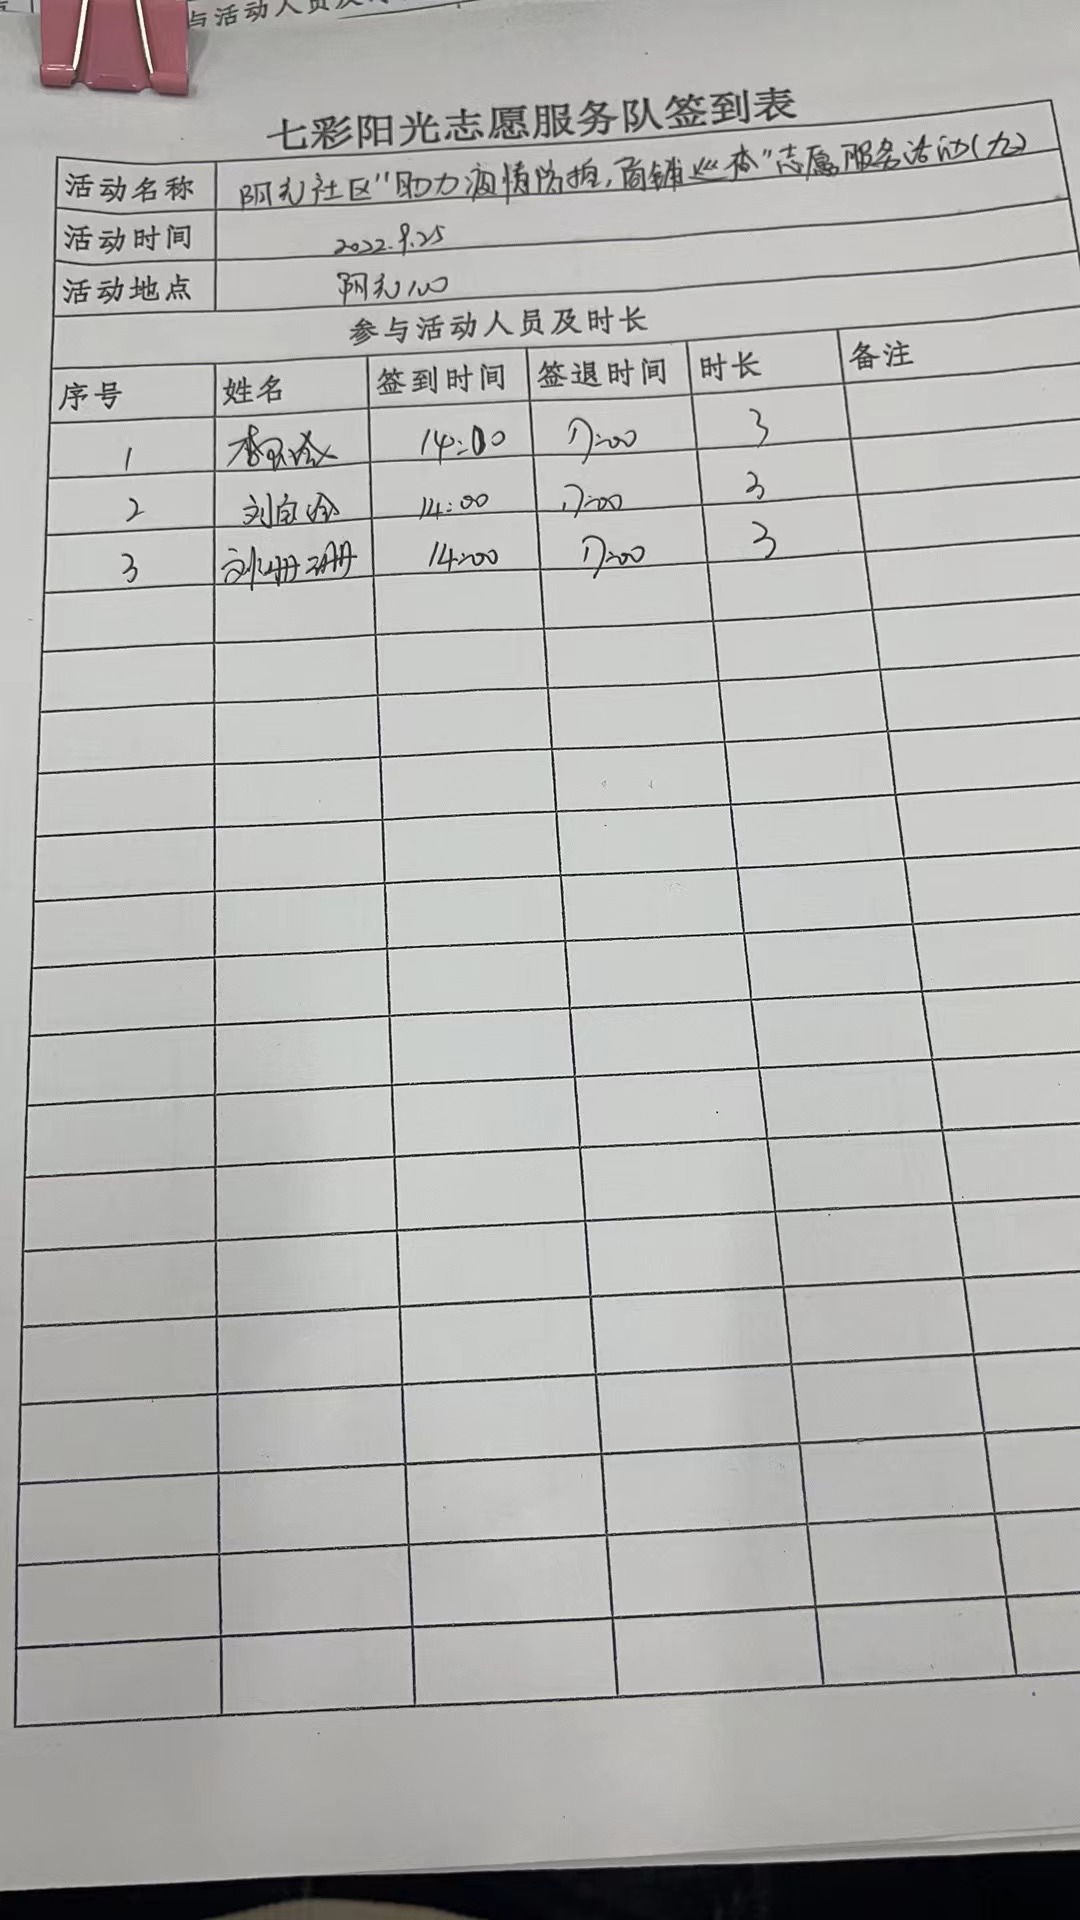 与活动人员及
七彩阳光志愿服务队签到表
活动名称 阳光社区“助力疫情防控,商铺巡查”志愿服务活动(九)
活动时间 2022.9.25
活动地点 阳光
参与活动人员及时长
序号 姓名 签到时间 签退时间 时长 备注
1 14:00 17:00 3
2 刘 14:00 17:00 3
3 刘珊珊 14:00 17:00 3